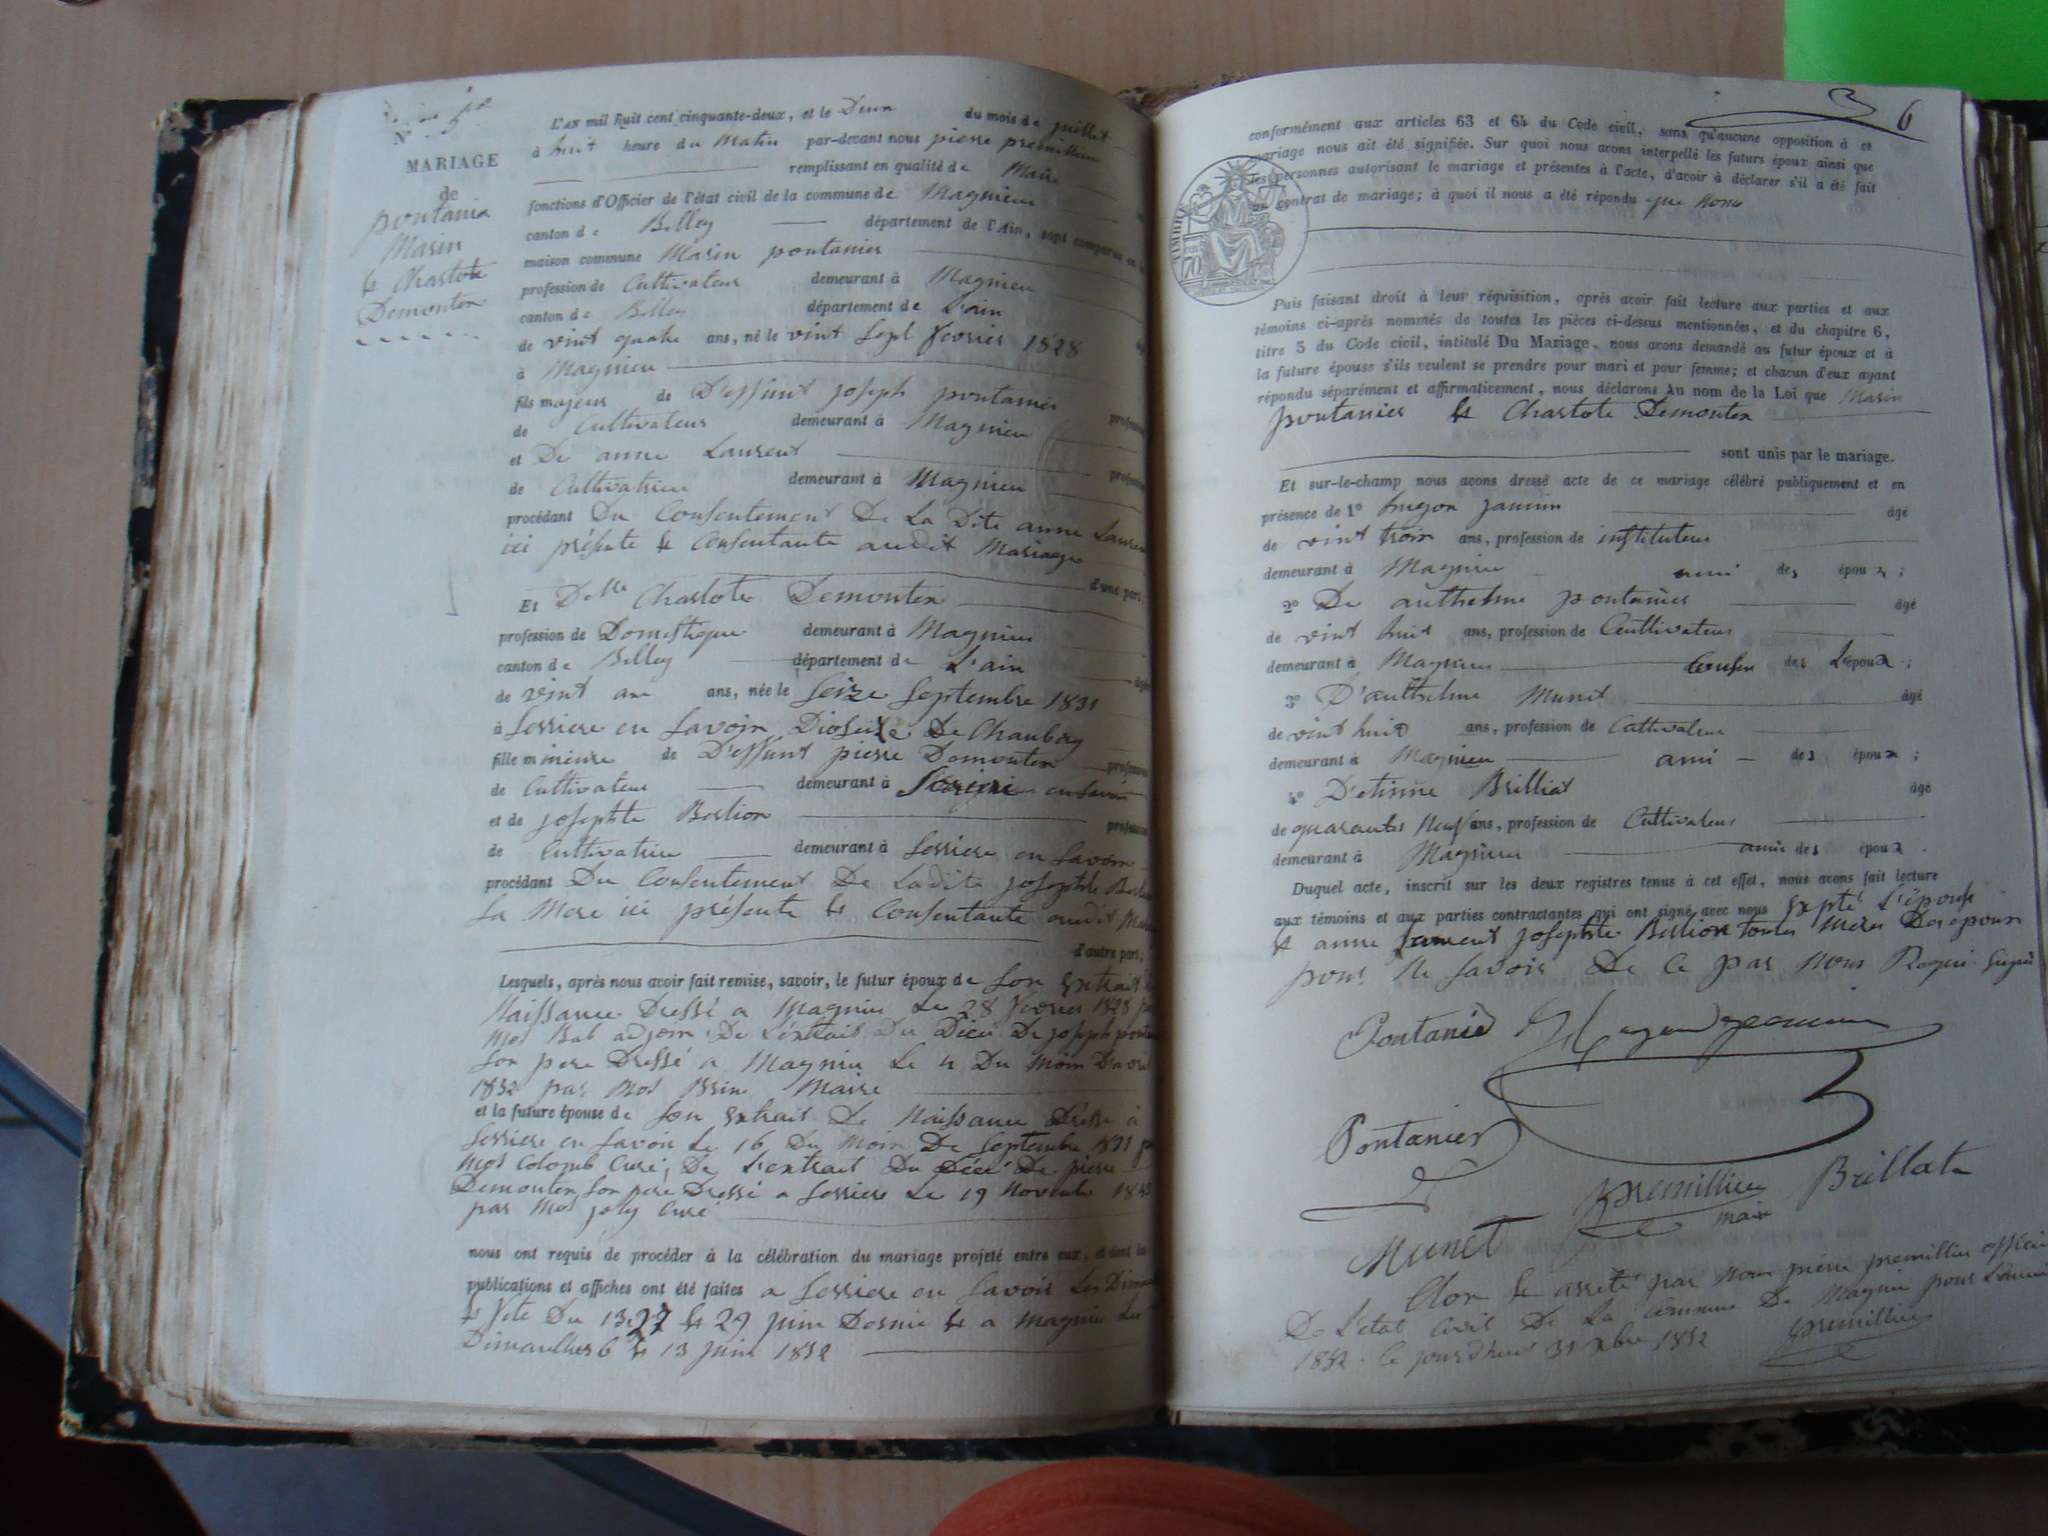 N° 5
MARIAGE
de
pontanie
Marin
et Charlote
Demonten
L'AN mil huit cent cinquante-deux, et le Deux du mois de juillet
à huit heure du Matin par-devant nous pierre premillieu
remplissant en qualité de Maire
fonctions d'Officier de l'état civil de la commune de Magnieu
canton de Belley département de l'Ain, sont comparus en la
maison commune Marin pontanier
profession de Cultivateur demeurant à Magnieu
canton de Belley département de L'ain
de vint quatre ans, né le vint Sept fevrier 1828
à Magnieu
fils majeur de Deffunt joseph pontanier
de Cultivateur demeurant à Magnieu profession
et De anne Laurent
de Cultivatrice demeurant à Magnieu profession
procédant Du Consentement De La Dite anne Laurent
ici présente et Consentante audit Mariage
d'une part,
Et Delle Charlote Demonten
profession de Domestique demeurant à Magnieu
canton de Belley département de L'ain
de vint an ans, née le Seize Septembre 1831 âgée
à Serriere en Savoir Diosaise De Chanbery
fille mineure de Deffunt pierre Demonten profession
de Cultivateur demeurant à en Savoir
et de josephte Berlion profession
de Cultivatrice demeurant à Serriere en Savoir
procédant Du Consentement De Ladite josephte Berlion
La Mere ici présente et Consentante audit
d'autre part;
Lesquels, après nous avoir fait remise, savoir, le futur époux de Son Extrait
Naissance Dressé a Magnieu Le 28 fevrier 1828
adjoin De L'extrait Du Décé De joseph
Son pere Dressé a Magnieu Le 4 Du Moin D'avril
1832 par Maire
et la future épouse de Son Extrait De Naissance Dressé à
Serriere en Savoir Le 16 Du Moin De Septembre 1831
Colomb Curé, De L'extrait Du Décé De pierre
Demonten Son peré Dressé a Serriere Le 19 Novembre
par joly Curé
nous ont requis de procéder à la célébration du mariage projeté entre eux, et dont les
publications et affiches ont été faites a Serriere en Savoir Les
et fete Du 13 27 et 29 juin Dernie et a Magnieu
Dimanches 6 et 13 juin 1852
6
conformément aux articles 63 et 64 du Code civil, sans qu'aucune opposition à ce
mariage nous ait été signifiée. Sur quoi nous avons interpellé les futurs époux ainsi que
les personnes autorisant le mariage et présentes à l'acte, d'avoir à déclarer s'il a été fait
un contrat de mariage; à quoi il nous a été répondu que Nons
TIMBRE
Puis faisant droit à leur réquisition, après avoir fait lecture aux parties et aux
témoins ci-après nommés de toutes les pièces ci-dessus mentionnées, et du chapitre 6,
titre 5 du Code civil, intitulé Du Mariage, nous avons demandé au futur époux et à
la future épouse s'ils veulent se prendre pour mari et pour femme; et chacun d'eux ayant
répondu séparément et affirmativement, nous déclarons Au nom de la Loi que Marin
pontanier et Charlote Demonten
sont unis par le mariage.
Et sur-le-champ nous avons dressé acte de ce mariage célébré publiquement et en
présence de 1° hugon janvin âgé
de vint troin ans, profession de instituteur
demeurant à Magnieu ami des époux;
2° De anthelme pontanier âgé
de vint huit ans, profession de Cultivateur
demeurant à Magnieu Cousin des L'époux;
3° D'anthelme Munet âgé
de vint huit ans, profession de Cultivateur
demeurant à Magnieu ami des époux;
4° D'etienne Brilliat âgé
de quarante Neuf ans, profession de Cultivateur
demeurant à Magnieu amis des époux.
Duquel acte, inscrit sur les deux registres tenus à cet effet, nous avons fait lecture
aux témoins et aux parties contractantes qui ont signé avec nous Exptè L'épouse
et anne Laurent josephte Berlion toutes Meres Des epoux
pour Ne Savoir De Ce par Nous Requi
Pontanié
Pontanier
premillieu Brillat
maire
Munet
Clos et arreté par Nous pierre premillieu officier
De L'etat Civil De La Commune De Magnieu pour L'année
1852. Ce jourdhuit 31 xbre 1852 premillieu